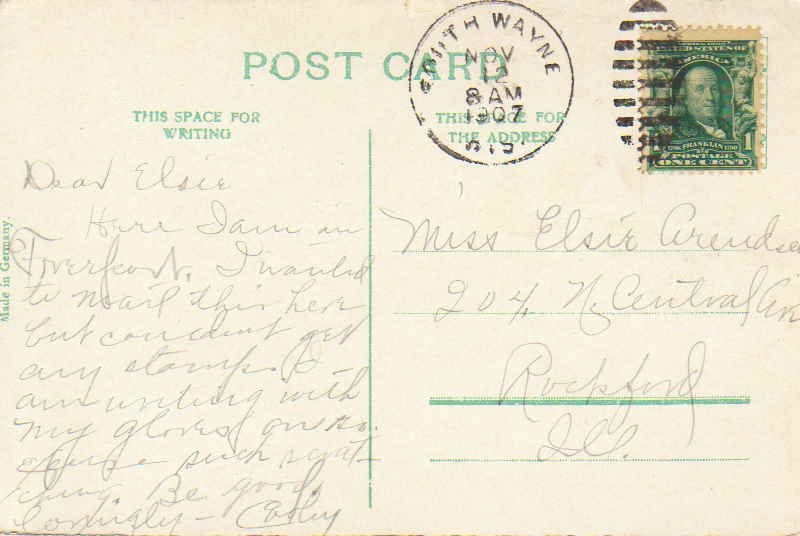 POST CARD
SOUTH WAYNE
NOV
12
8 AM
1907
WIS.
UNITED STATES OF
AMERICA
FRANKLIN
POSTAGE
ONE CENT
1
THIS SPACE FOR
WRITING
THIS SPACE FOR
THE ADDRESS
Made in Germany.
Dear Elsie
Here I am in
I wanted
to mail this here
but couldent get
any stamps. I
am writing with
my gloves on so
excuse such scrat-
ching. Be good.
Lovingly -
Miss Elsie Arendsen
204 N. Central Av
Rockford
Ill.